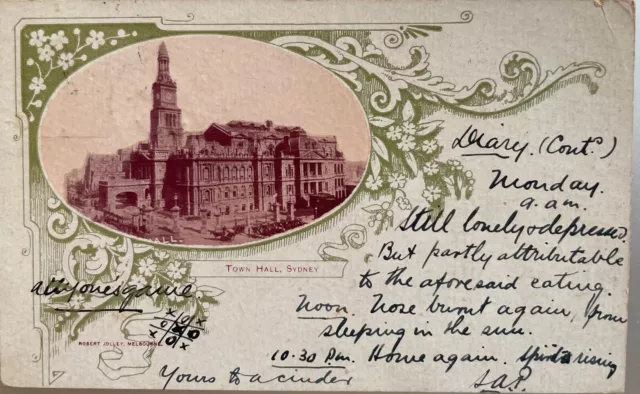 Diary. (Cont.)
Monday.
a.m.
Still lonely & depressed.
But partly attributable
to the aforesaid eating.
Noon. Nose burnt again, from
sleeping in the sun.
10.30 p.m. Home again. Spirits rising
Yours to a cinder
TOWN HALL, SYDNEY
anyone's game
ROBERT JOLLEY, MELBOURNE